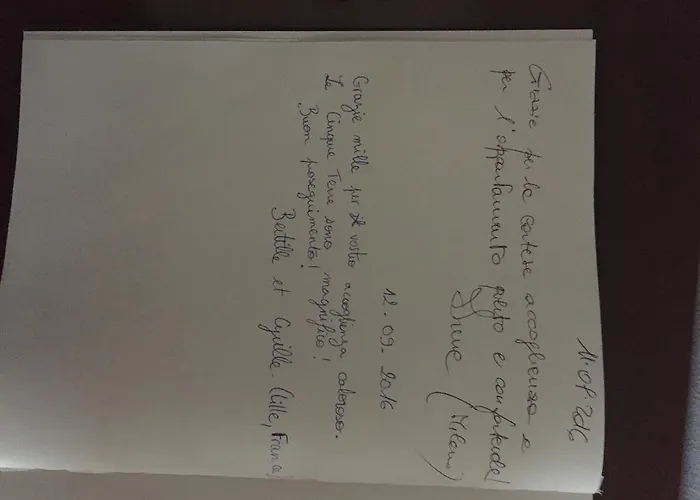 11.08.2016
Grazie per la cortese accoglienza e
per l'appartamento pulito e confortevole!
(Milano)
12.09.2016
Grazie mille per il vostro accoglienza caloroso.
Le Cinque Terre sono magnifico!
Buon proseguimento!
et Cyrille. (Lille, France)